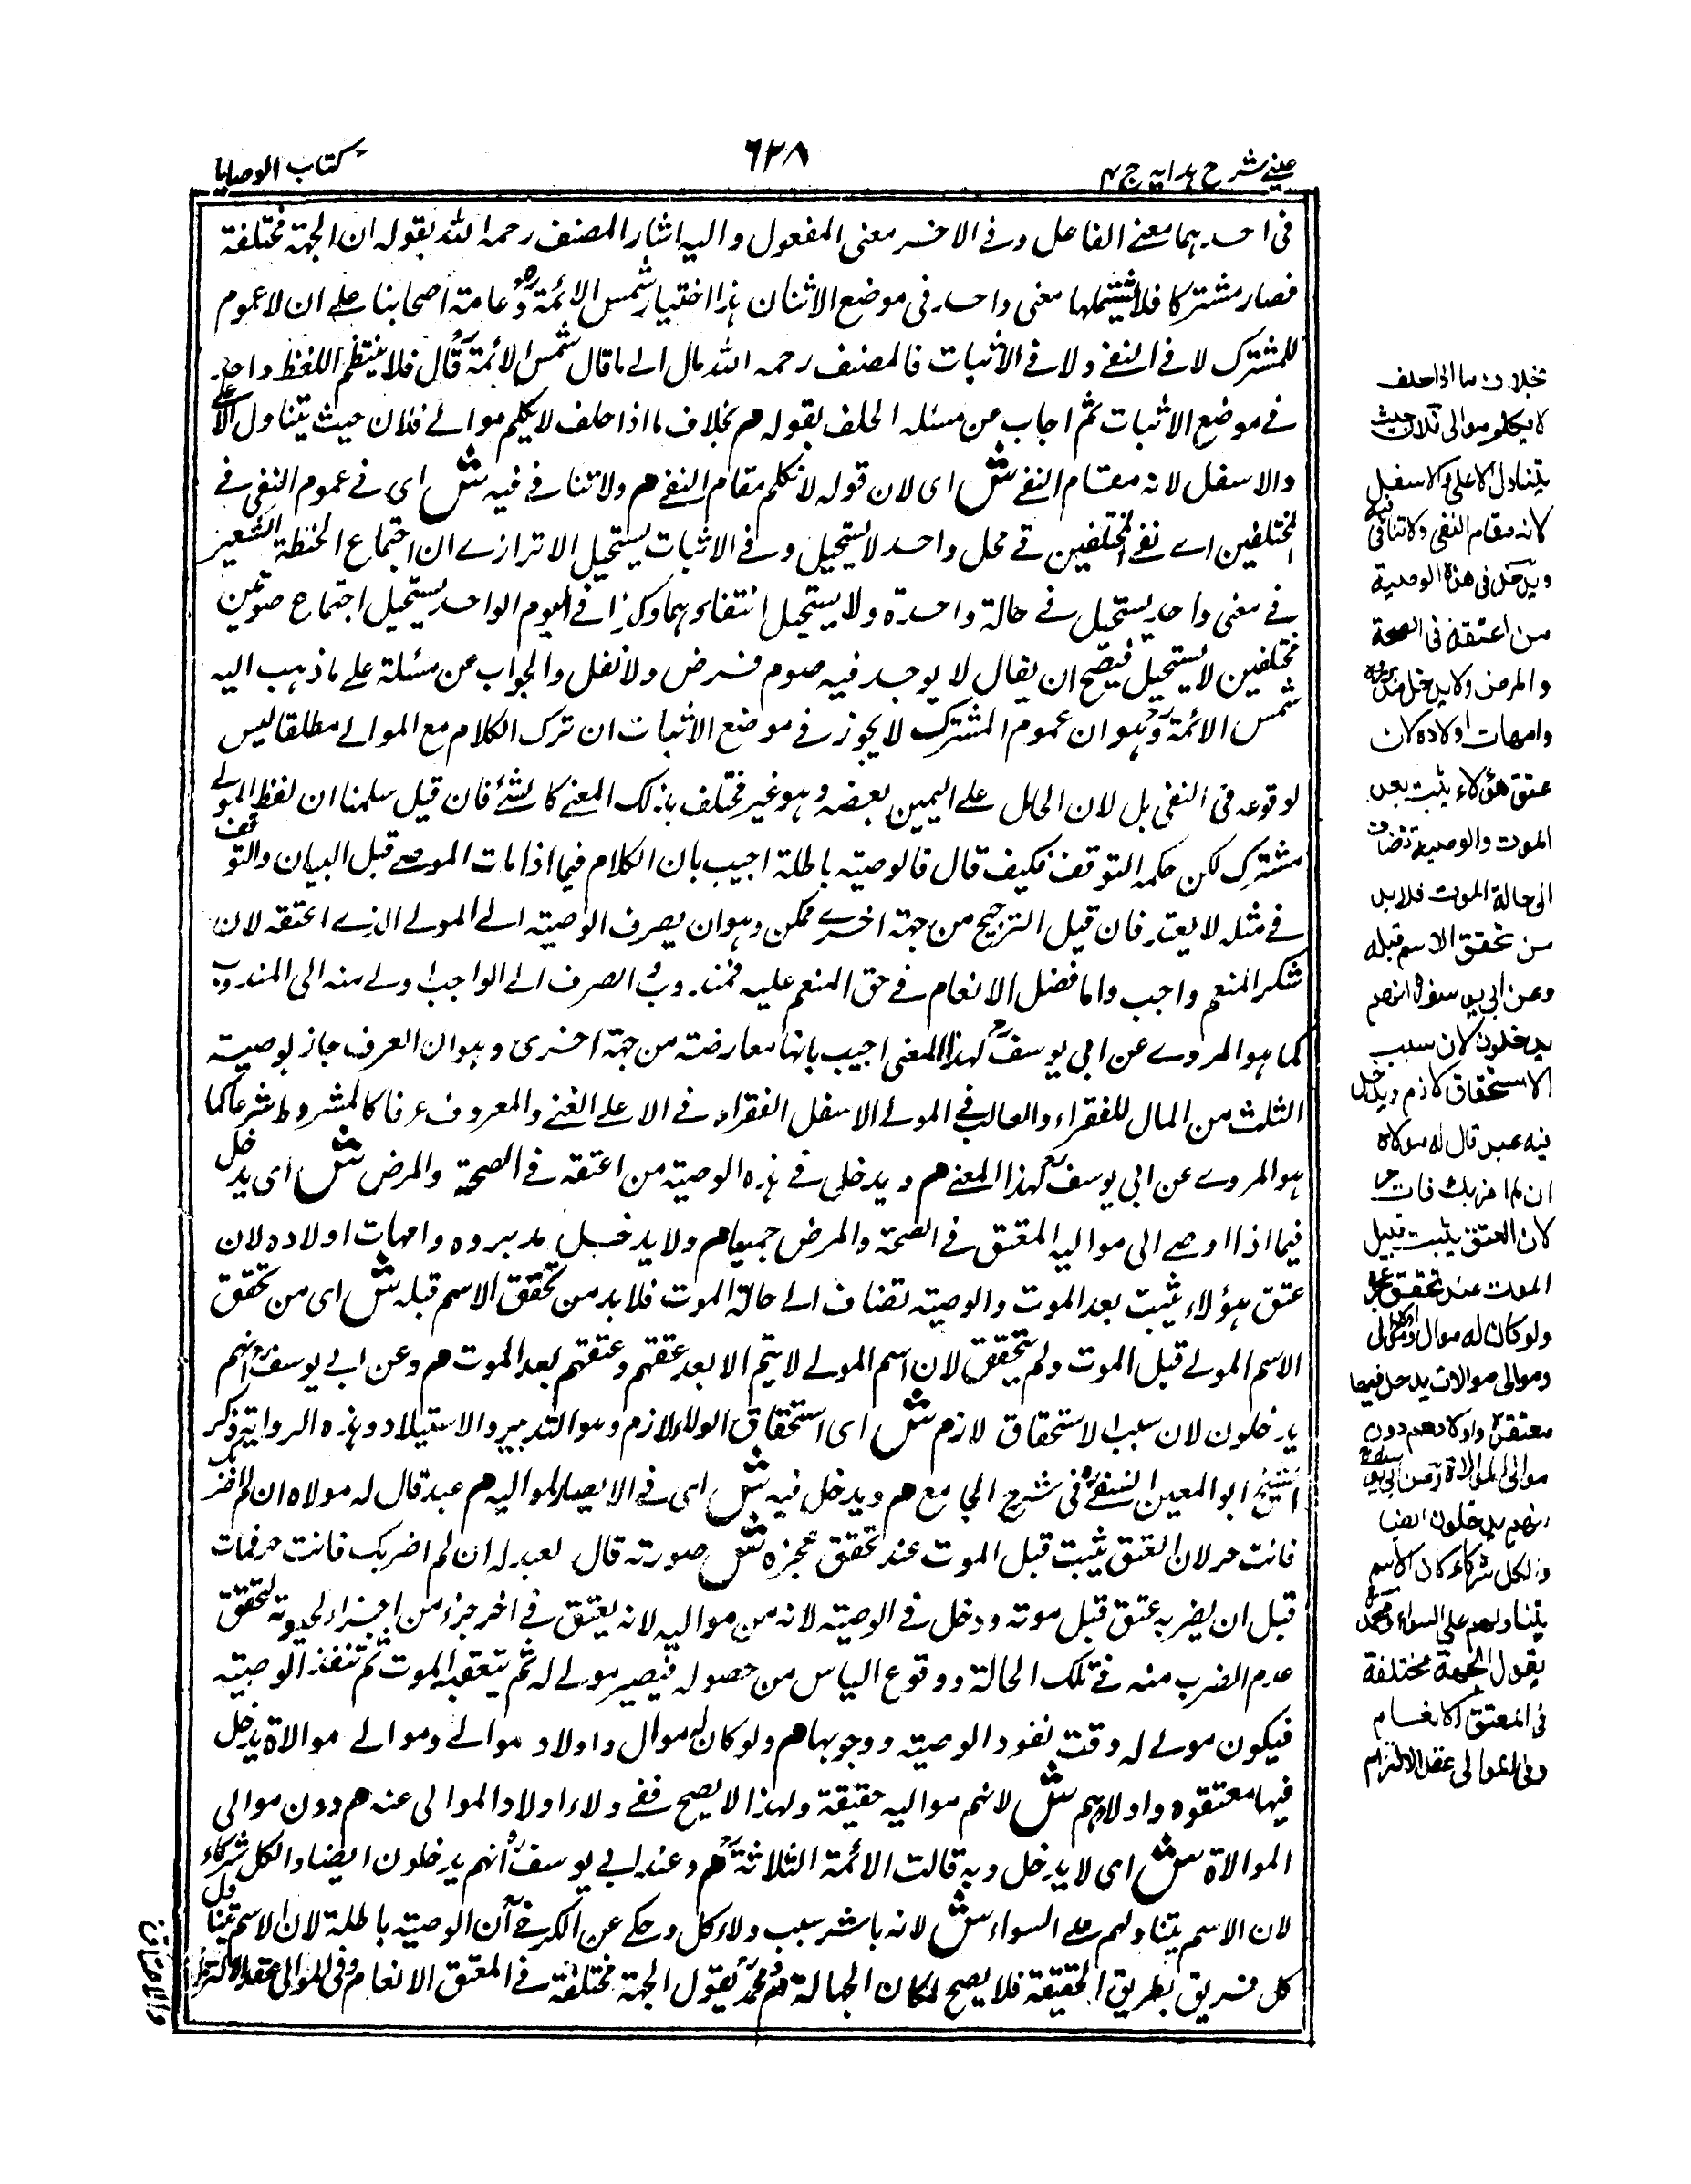 عيني شرح هدايه ج ٤
٦٣٨
كتاب الوصايا
فى احدهما معنے الفاعل وفے الاخر معنى المفعول واليه اشار المصنف رحمه الله بقوله ان الجهة مختلفة
فصار مشتركا فلا ينتظمها معنى واحد فى موضع الاثبات هذا اختيار شمس الائمة رح وعامة اصحابنا علے ان لا عموم
للمشترك لا فے النفے ولا فے الاثبات فالمصنف رحمه الله مال الے ما قال شمس الائمة رح قال فلا ينتظم اللفظ واحد
فے موضع الاثبات ثم اجاب عن مسئلة الحلف بقوله هم بخلاف ما اذا حلف لا يكلم موالے فلان حيث يتناول الاعلى
والاسفل لانه مقام النفے ش اى لان قوله لا نكلم مقام النفے هم ولا تنافے فيه ش اى فے عموم النفى فے
المختلفين اے نفے المختلفين فے محل واحد لا يستحيل وفے الاثبات يستحيل الا ترازے ان اجتماع الحنطة الشعير
فے معنى واحد يستحيل فے حالة واحدة ولا يستحيل انتفاء هما وكذا فے اليوم الواحد يستحيل اجتماع صومين
مختلفين لا يستحيل فيصح ان يقال لا يوجد فيه صوم فرض ولا نفل والجواب عن مسئلة علے ما ذهب اليه
شمس الائمة رح وهو ان عموم المشترك لا يجوز فے موضع الاثبات ان ترك الكلام مع الموالے مطلقا ليس
لوقوعه فى النفى بل لان الحامل علے اليمين بعضه وهو غير مختلف بذلك المعنے كالشئ فان قيل سلمنا ان لفظ المولے
مشترك لكن حكمه التوقف فكيف قال فالوصية باطلة اجيب بان الكلام فيما اذا مات الموصے قبل البيان والتوقف
فے مثله لا يعتد فان قيل الترجيح من جهة اخرے ممكن وهو ان يصرف الوصية الے المولے الذے اعتقه لان
شكر المنعم واجب واما فضل الانعام فے حق المنعم عليه فمندوب والصرف الے الواجب اولے منه الى المندوب
كما هو المروے عن ابى يوسف رح لهذا المعنى اجيب بانها معارضة من جهة اخرى وهو ان العرف جاز بوصية
الثلث من المال للفقراء والغالب فے المولے الاسفل الفقراء وفے الاعلے الغنے والمعروف عرفا كالمشروط شرعا كما
هو المروے عن ابى يوسف رح لهذا المعنے هم ويدخل فے هذه الوصية من اعتقه فے الصحة والمرض ش اى يدخل
فيما اذا اوصے الى مواليه المعتق فے الصحة والمرض جميعا هم ولا يدخل مدبروه وامهات اولاده لان
عتق هؤلاء يثبت بعد الموت والوصية تضاف الے حالة الموت فلا بد من تحقق الاسم قبله ش اى من تحقق
الاسم المولے قبل الموت ولم يتحقق لان اسم المولے لا يتم الا بعد عتقهم وعتقهم بعد الموت هم وعن ابے يوسف رح انهم
يدخلون لان سبب الاستحقاق لازم ش اى استحقاق الولاء لازم وهو التدبير والاستيلاد وهذه الرواية ذكر
الشيخ ابو المعين النسفے رح فى شرح الجامع هم ويدخل فيه ش اى فے الايصاء لمواليه هم عبد قال له مولاه ان لم اضربك
فانت حر لان العتق يثبت قبل الموت عند تحقق عجزه ش صورته قال لعبده ان لم اضربك فانت حر فمات
قبل ان يضربه عتق قبل موته ودخل فے الوصية لانه من مواليه لانه يعتق فے اخر جزء من اجزاء لحيوته لتحقق
عدم الضرب منه فے تلك الحالة ووقوع الياس من حصوله فيصير مولے له ثم يتعقبه الموت ثم تنفذ الوصية
فيكون مولے له وقت نفوذ الوصية ووجوبها هم ولو كان له موال واولاد موالے وموالے موالاة يدخل
فيها معتقوه واولادهم ش لانهم مواليه حقيقة ولهذا لا يصح نفے ولاء اولاد الموالى عنه هم دون موالى
الموالاة ش اى لا يدخل وبه قالت الائمة الثلاثة رح هم وعند ابے يوسف رح انهم يدخلون ايضا والكل شركاء
لان الاسم يتناولهم علے السواء ش لانه باشر سبب ولاء كل وحكے عن الكرخے رح ان الوصية باطلة لان الاسم يتناول
كل فريق بطريق الحقيقة فلا يصح لمكان الجهالة هم ومحمد رح يقول الجهة مختلفة فے المعتق الانعام وفى الموالى عقد الالتزام
والاعتاق
بخلاف ما اذا حلف
لا يكلم موالى فلان حيث
يتناول الاعلى والاسفل
لانه مقام النفى ولا تنافى فيه
ويدخل فى هذه الوصية
من اعتقه فى الصحة
والمرض ولا يدخل مدبروه
وامهات اولاده لان
عتق هؤلاء يثبت بعد
الموت والوصية تضاف
الى حالة الموت فلا بد
من تحقق الاسم قبله
وعن ابى يوسف رح انهم
يدخلون لان سبب
الاستحقاق لازم ويدخل
فيه عبد قال له مولاه
ان لم اضربك فانت حر
لان العتق يثبت قبيل
الموت عند تحقق عجزه
ولو كان له موال واولاد موالى
وموالى موالات يدخل فيها
معتقوه واولادهم دون
موالى الموالاة وعن ابى يوسف رح
انهم يدخلون ايضا
والكل شركاء لان الاسم
يتناولهم على السواء ومحمد رح
يقول الجهة مختلفة
فى المعتق الانعام
وفى الموالى عقد الالتزام